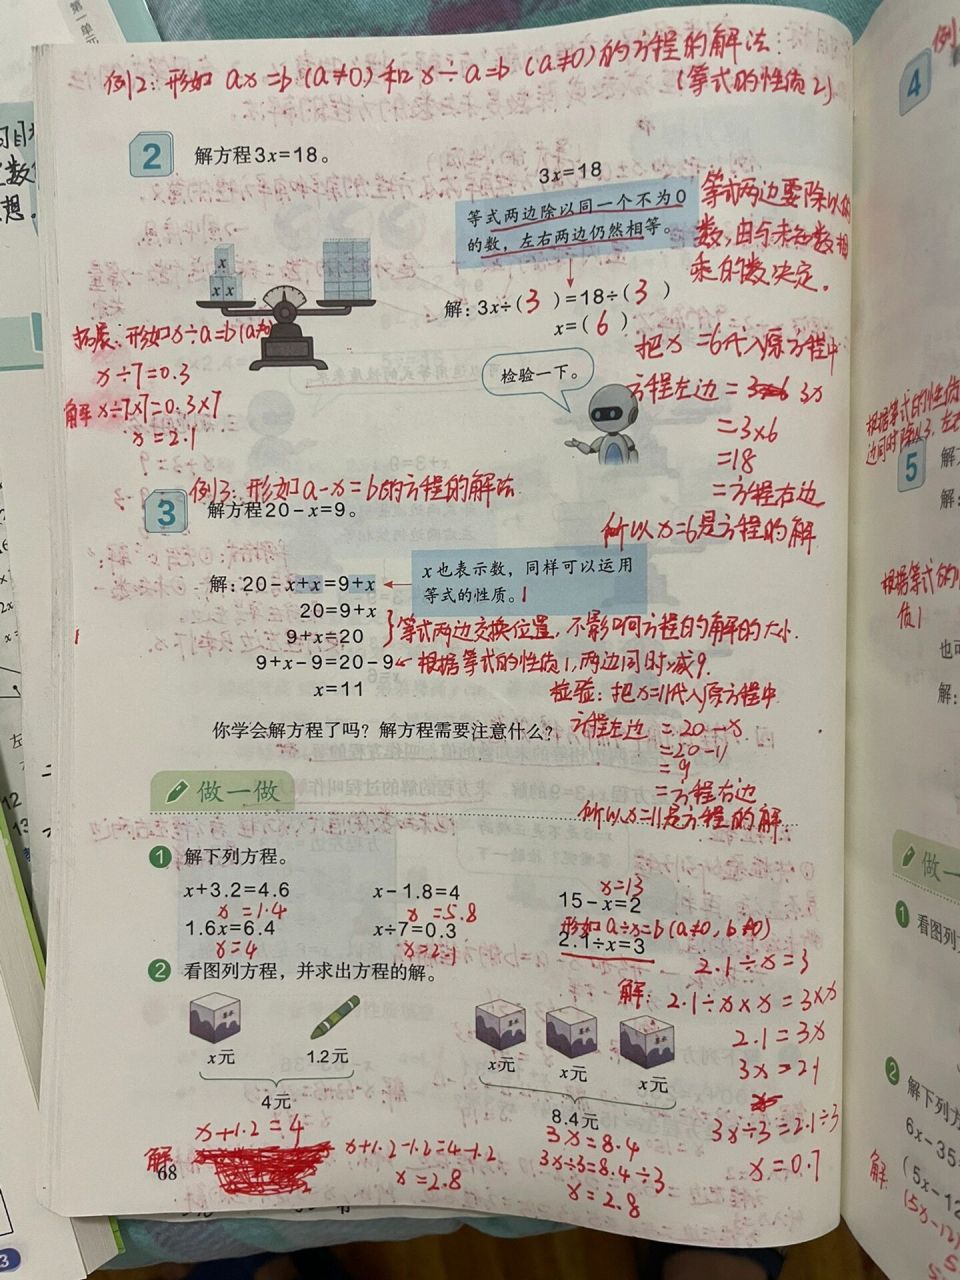 例2：形如 ax=b (a≠0) 和 x÷a=b (a≠0) 的方程的解法：
(等式的性质2)
2 解方程3x=18。
3x=18
等式两边除以同一个不为0
的数，左右两边仍然相等。
等式两边要除以的
数，由与未知数相
乘的数决定。
x
x x
解：3x÷(3)=18÷(3)
x=(6)
拓展：形如x÷a=b(a≠0)
x÷7=0.3
解 x÷7×7=0.3×7
x=2.1
检验一下。
把x=6代入原方程中
方程左边=3x
=3×6
=18
=方程右边
所以x=6是方程的解
例3：形如a-x=b的方程的解法
3 解方程20-x=9。
解：20-x+x=9+x
x也表示数，同样可以运用
等式的性质。1
20=9+x
9+x=20
等式两边交换位置，不影响方程的解的大小.
9+x-9=20-9
根据等式的性质1，两边同时减9.
x=11
检验：把x=11代入原方程中
你学会解方程了吗？解方程需要注意什么？
方程左边=20-x
=20-11
=9
=方程右边
所以x=11是方程的解.
做一做
1 解下列方程。
x+3.2=4.6 x-1.8=4 15-x=2
x=1.4 x=5.8 x=13
1.6x=6.4 x÷7=0.3 2.1÷x=3
x=4 x=2.1
形如a÷x=b(a≠0,b≠0)
2 看图列方程，并求出方程的解。
2.1÷x=3
解：2.1÷x×x=3×x
2.1=3x
3x=2.1
3x÷3=2.1÷3
x=0.7
x元 1.2元
4元
x元 x元 x元
8.4元
x+1.2=4
解
x+1.2-1.2=4-1.2
x=2.8
3x=8.4
3x÷3=8.4÷3
x=2.8
68
4
5
解：
也可
解：
做一
1 看图列
2 解下列方
6x-35
解
(5x-12
(5x-12)